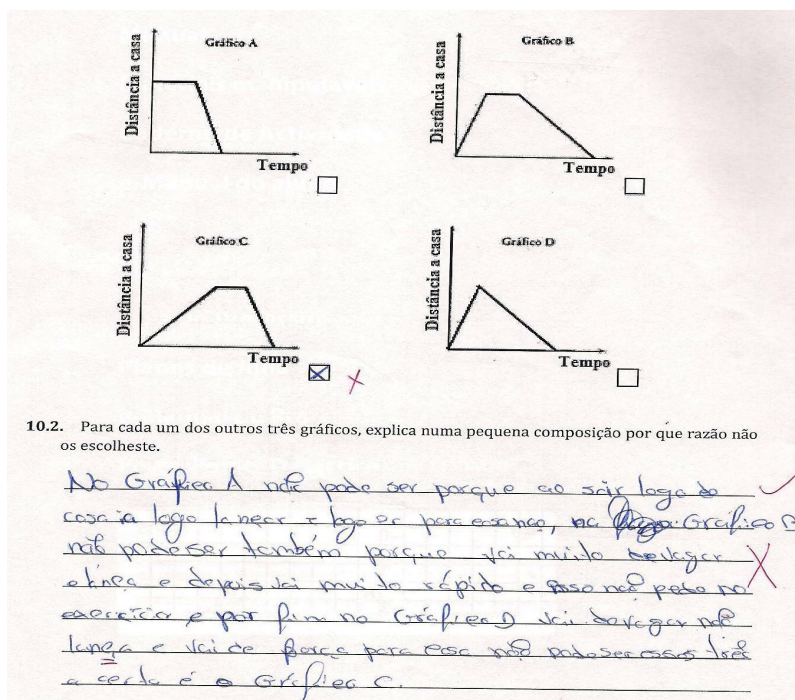 Gráfico A
Distância a casa
Tempo
Gráfico B
Distância a casa
Tempo
Gráfico C
Distância a casa
Tempo
Gráfico D
Distância a casa
Tempo
10.2. Para cada um dos outros três gráficos, explica numa pequena composição por que razão não
os escolheste.
No Gráfico A não pode ser porque ao sair logo de
casa ia logo lancar e logo para, na Gráfico B
não pode ser também porque vai muito devagar
e depois vai muito rápido e isso não pede no
exercício e por fim no Gráfico D vai devagar não
lança e vai de para casa não pode ser esses três
a certa é o Gráfico C.